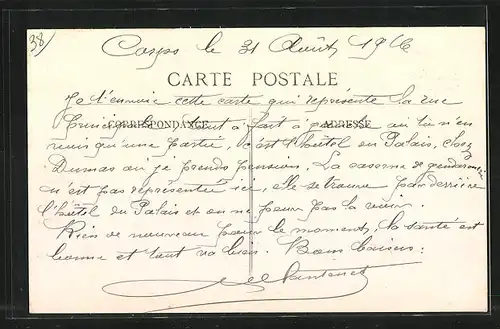 38)
Corps le 31 Août 1916
CARTE POSTALE
Je t'envoie cette carte qui représente la rue
CORRESPONDANCE ADRESSE
tout à fait à gauche ou tu n'en
vois qu'une partie, c'est l'hôtel du Palais, chez
Dumas où je prends pension. La caserne de gendarmerie
n'est pas représentée ici, elle se trouve par derrière
l'hôtel du Palais et on ne peur pas la voir.
Rien de nouveau pour le moment, la santé est
bonne et tout va bien. Bons baisers.